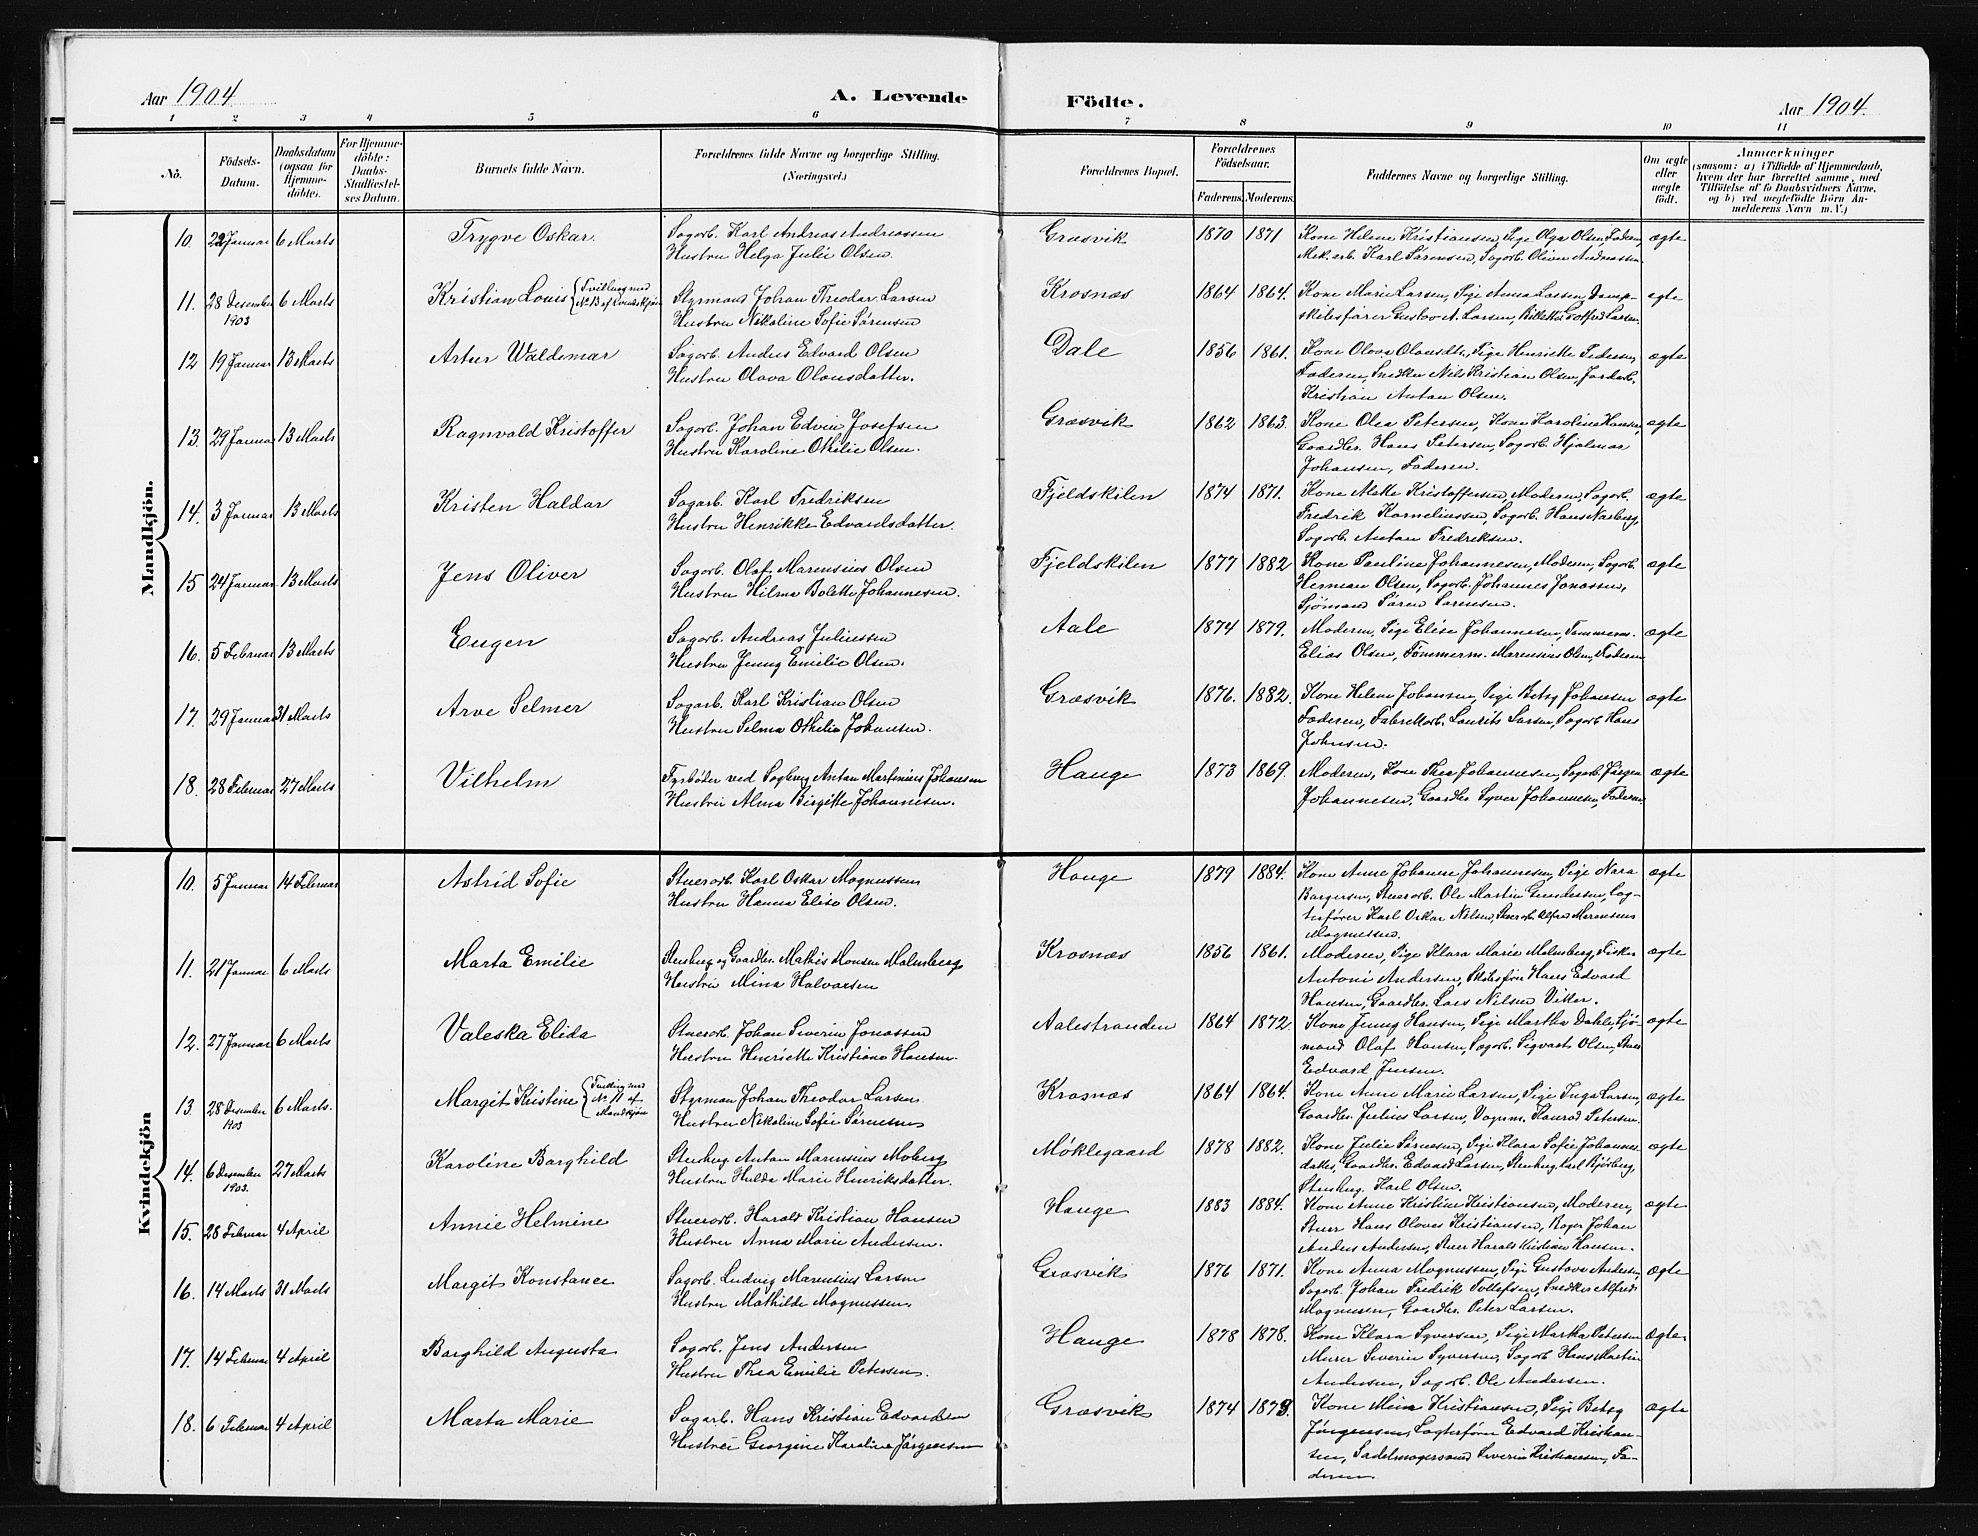 Aar 1904.
A. Levende Födte.
Aar 1904.
1 2 3 4 5 6 7 8 9 10 11
No.
Födsels-Datum.
Daabsdatum (ogsaa for Hjemme-döbte).
For Hjemme-döbte: Daabs-Stadfæstel-ses Datum.
Barnets fulde Navn.
Forældrenes fulde Navne og borgerlige Stilling. (Næringsvei.)
Forældrenes Bopæl.
Forældrenes Födselsaar.
Faderens. Moderens.
Faddernes Navne og borgerlige Stilling.
Om ægte eller uægte födt.
Anmærkninger
(saasom: a) i Tilfælde af Hjemmedaab, hvem der har forrettet samme, med Tilföielse af to Daabsvidners Navne. og b) ved uægtefödte Börn An-melderens Navn m. V.)
Mandkjön.
10. 22 Januar 6 Marts Trygve Oskar. Sagarb. Karl Andreas Andreassen Græsvik 1870 1871 Kone Helene Kristiansen, Pige Olga Olsen, Faderen, ægte
Hustru Helga Julie Olsen. Mek. arb. Karl Sørensen, Sagarb. Oliver Andreassen.
11. 28 Desember 6 Marts Kristian Louis {Tvilling med No 13 af Kvindekjön Styrmand Johan Theodor Larsen Krosnæs 1864 1864. Kone Marie Larsen, Pige Anna Larsen, Damp- ægte
1903 Hustru Nikoline Sofie Sørensen skibsfører Gustav A. Larsen, Gotfred Larsen.
12 19 Januar 13 Marts Artur Waldemar Sagarb. Anders Edvard Olsen Dale 1856 1861. Kone Olava Olausdtr., Pige Henriette Pedersen, ægte
Hustru Olava Olausdatter. Faderen, Snedker Nils Kristian Olsen, Jordarb.
Kristian Anton Olsen.
13. 29 Januar 13 Marts Ragnvald Kristoffer Sagarb. Johan Edvin Josefsen Græsvik 1862 1863. Kone Olea Petersen, Kone Karoline Hansen, ægte
Hustru Karoline Othilie Olsen. Gaardbr. Hans Petersen, Sagarb. Hjalmar
Johansen, Faderen.
14. 3 Januar 13 Marts Kristen Haldor Sagarb. Karl Fredriksen Fjeldskilen 1874 1871. Kone Mette Kristoffersen, Moderen, Sagarb. ægte
Hustru Henrikke Edvardsdatter. Fredrik Korneliussen, Sagarb. Hans Narberg,
Sagarb. Anton Fredriksen.
15 24 Januar 13 Marts Jens Oliver Sagarb. Olaf Marensius Olsen Fjeldskilen 1877 1882 Kone Pauline Johannesen, Moderen, Sagarb. ægte
Hustru Hilma Bolette Johannesen. Herman Olsen, Sagarb. Johannes Jonassen,
Sjömand Sören Sørensen.
16. 5 Februar 13 Marts Eugen Sagarb. Andreas Juliussen Aale 1874 1879. Moderen, Pige Elise Johannesen, Tømmerm. ægte
Hustru Jenny Emilie Olsen. Elias Olsen, Tömmerm. Marensius Olsen, Faderen
17. 29 Januar 31 Marts Arve Selmer Sagarb. Karl Kristian Olsen Græsvik 1876. 1882. Kone Helene Johansen, Pige Betsy Johansen ægte
Hustru Selma Othilie Johansen. Faderen, Fabrikarb. Laurits Larsen, Sagarb. Hans
Johnsen.
18. 28 Februar 27 Marts Vilhelm Fyrbøder ved Sagbrug Anton Martinius Johansen Hauge 1873 1869. Moderen, Kone Thea Johannesen, Sagarb. Jörgen ægte
Hustru Alma Birgitte Johannesen. Johannesen, Gaardbr. Syver Johannesen, Faderen
Kvindekjön
10. 5 Januar 14 Februar Astrid Sofie Stuerarb. Karl Oskar Magnussen Hauge 1879 1884. Kone Anne Johanne Johannesen, Pige Nora ægte
Hustru Hanna Elise Olsen. Borgersen, Stuerarb. Ole Martin Gundersen, Log-
tufører Karl Oskar Nilsen, Stuerarb. Marensius
Magnussen.
11. 21 Januar 6 Marts Marta Emilie Stenhug. og Gaardbr. Mathis Monsen Malmberg Krosnæs 1856 1861. Moderen, Pige Klara Marie Malmberg, Fisker ægte
Hustru Mina Halvorsen Antoni Andersen, Skibsfører Hans Edvard
Hansen, Gaardbr. Lars Nilsen Vikter.
12. 27 Januar 6 Marts Valeska Elida Stuerarb. Johan Severin Jonassen Aalestranden 1864 1872. Kone Jenny Hansen, Pige Martha Dahl, Sjö- ægte
Hustru Henriette Kristiane Hansen. mand Olaf Hansen, Sagarb. Sigvart Olsen, Stuer
Edvard Jensen.
13. 28 Desember 6 Marts. Margit Kristine {Tvilling med No 11 af Mandkjön Styrman Johan Theodor Larsen Krosnæs 1864 1864. Kone Anne Marie Larsen, Pige Inga Larsen, ægte
1903 Hustru Nikoline Sofie Sørensen Gaardbr. Julius Larsen, Vognm. Konrad Petersen.
14. 6 Desember 27 Marts Karoline Borghild Stenhug. Anton Marensius Moberg Møklegaard 1878 1882. Kone Julie Sørnesen, Pige Klara Sofie Johannes- ægte
1903. Hustru Hulda Marie Henriksdatter. datter, Gaardbr. Edvard Larsen, Stenhug. Karl Bjørberg,
Stenhug. Karl Olsen.
15. 28 Februar 4 April Annie Helmine Stuerarb. Harald Kristian Hansen Hauge 1883 1884. Kone Anne Kristine Kristiansen, Moderen, ægte
Hustru Anna Marie Andersen. Stuer Hans Olaves Kristiansen, Johan
Anders Andersen, Stuer Harald Kristian Hansen.
16. 14 Marts 31 Marts Margit Konstance Sagarb. Ludvig Marensius Larsen Græsvik 1876 1871. Kone Anna Magnussen, Pige Gustava Andersen, ægte
Hustru Mathilde Magnussen. Sagarb. Johan Fredrik Tollefsen, Snedker Alfred
Magnussen, Gaardbr. Peter Larsen.
17. 14 Februar 4 April Borghild Augusta Sagarb. Jens Andersen Hauge 1878 1878. Kone Klara Syversen, Pige Martha Petersen ægte
Hustru Thea Emilie Petersen. Murer Severin Syversen, Sagarb. Hans Martin
Andersen, Sagarb. Ole Andersen.
18. 6 Februar 4 April Marta Marie Sagarb. Hans Kristian Edvardsen Græsvik 1874 1873. Kone Mina Kristiansen, Pige Betsy ægte
Hustru Georgine Karoline Jørgensen Jörgensen, Logterförer Edvard Kristian-
sen, Sadelmagersvend Severin Kristiansen, Fa-
deren